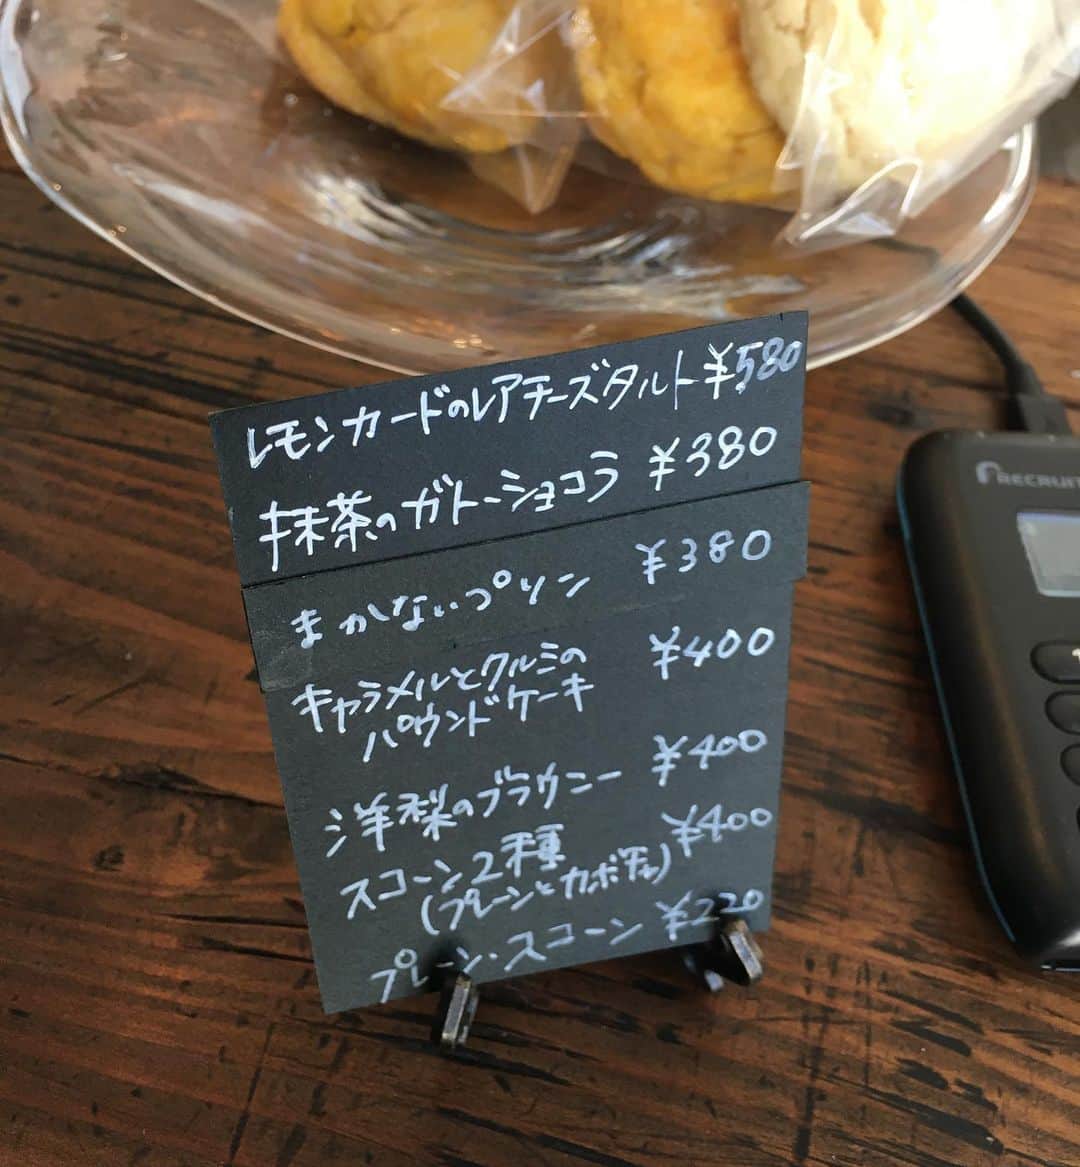 レモンカードのレアチーズタルト ¥580
抹茶のガトーショコラ ¥380
まかないプリン ¥380
キャラメルとクルミの
パウンドケーキ ¥400
洋梨のブラウニー ¥400
スコーン2種 ¥400
(プレーンとカボチャ)
プレーン・スコーン ¥220
RECRUIT